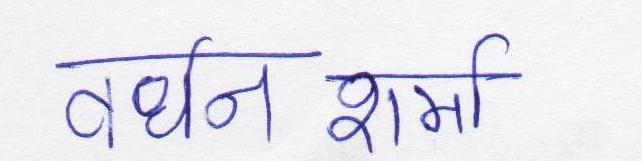 वर्धन शर्मा